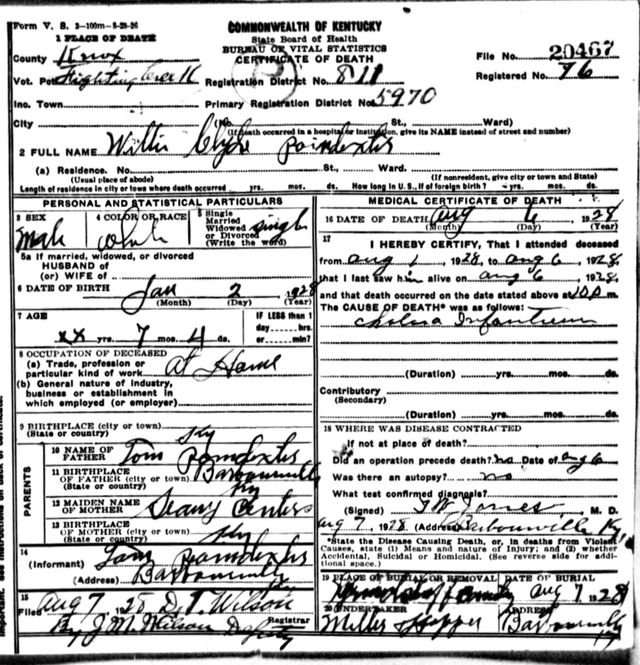 Form V. S. 2-100m-8-28-26
COMMONWEALTH OF KENTUCKY
State Board of Health
BUREAU OF VITAL STATISTICS
CERTIFICATE OF DEATH
1 PLACE OF DEATH
County Knox
File No. 20467
Vot. Pct Fighting Creek
Registration District No. 811
Registered No. 76
Inc. Town
Primary Registration District No. 5970
City (No. St., Ward)
(If death occurred in a hospital or institution, give its NAME instead of street and number)
2 FULL NAME Willie Clyde Poindexter
(a) Residence. No. St., Ward.
(Usual place of abode) (If nonresident, give city or town and State)
Length of residence in city or town where death occurred yrs. mos. ds. How long in U. S., if of foreign birth? yrs. mos. ds.
PERSONAL AND STATISTICAL PARTICULARS
3 SEX Male
4 COLOR OR RACE White
5 Single Married Widowed or Divorced (Write the word) Single
5a If married, widowed, or divorced
HUSBAND of
(or) WIFE of
6 DATE OF BIRTH Jan 2, 1928
(Month) (Day) (Year)
7 AGE
xx yrs. 7 mos. 4 ds.
IF LESS than 1
day hrs.
or min?
8 OCCUPATION OF DECEASED
(a) Trade, profession or particular kind of work At Home
(b) General nature of industry,
business or establishment in
which employed (or employer)
9 BIRTHPLACE (city or town) Ky
(State or country)
PARENTS
10 NAME OF FATHER Tom Poindexter
11 BIRTHPLACE OF FATHER (city or town) Barbourville
(State or country) Ky
12 MAIDEN NAME OF MOTHER Centers
13 BIRTHPLACE OF MOTHER (city or town) Ky
(State or country)
14
(Informant) Tom Poindexter
(Address) Barbourville
15
Filed Aug 7, 1928 D. T. Wilson
Registrar
By J. M. Wilson Deputy
MEDICAL CERTIFICATE OF DEATH
16 DATE OF DEATH Aug 6 1928
(Month) (Day) (Year)
17
I HEREBY CERTIFY, That I attended deceased
from Aug 1, 1928, to Aug 6, 1928,
that I last saw him alive on Aug 6 1928,
and that death occurred on the date stated above at m.
The CAUSE OF DEATH* was as follows:
Cholera Infantum
(Duration) yrs. mos. ds.
Contributory
(Secondary)
(Duration) yrs. mos. ds.
18 WHERE WAS DISEASE CONTRACTED
If not at place of death?
Did an operation precede death? no Date of Aug 6
Was there an autopsy? no
What test confirmed diagnosis?
(Signed) Jones, M. D.
Aug 7, 1928 (Address) Barbourville Ky.
*State the Disease Causing Death, or, in deaths from Violent
Causes, state (1) Means and nature of Injury; and (2) whether
Accidental, Suicidal or Homicidal. (See reverse side for addi-
tional space.)
19 PLACE OF BURIAL OR REMOVAL
DATE OF BURIAL
Aug 7 1928
20 UNDERTAKER
Miller Hopper
ADDRESS
Barbourville Ky